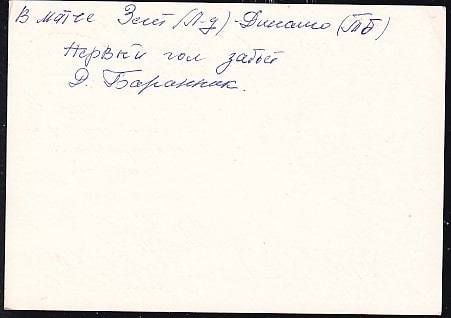 В матче Зенит (Л-д) - Динамо (Тб)
Первый гол забьёт
Д. Баранник.